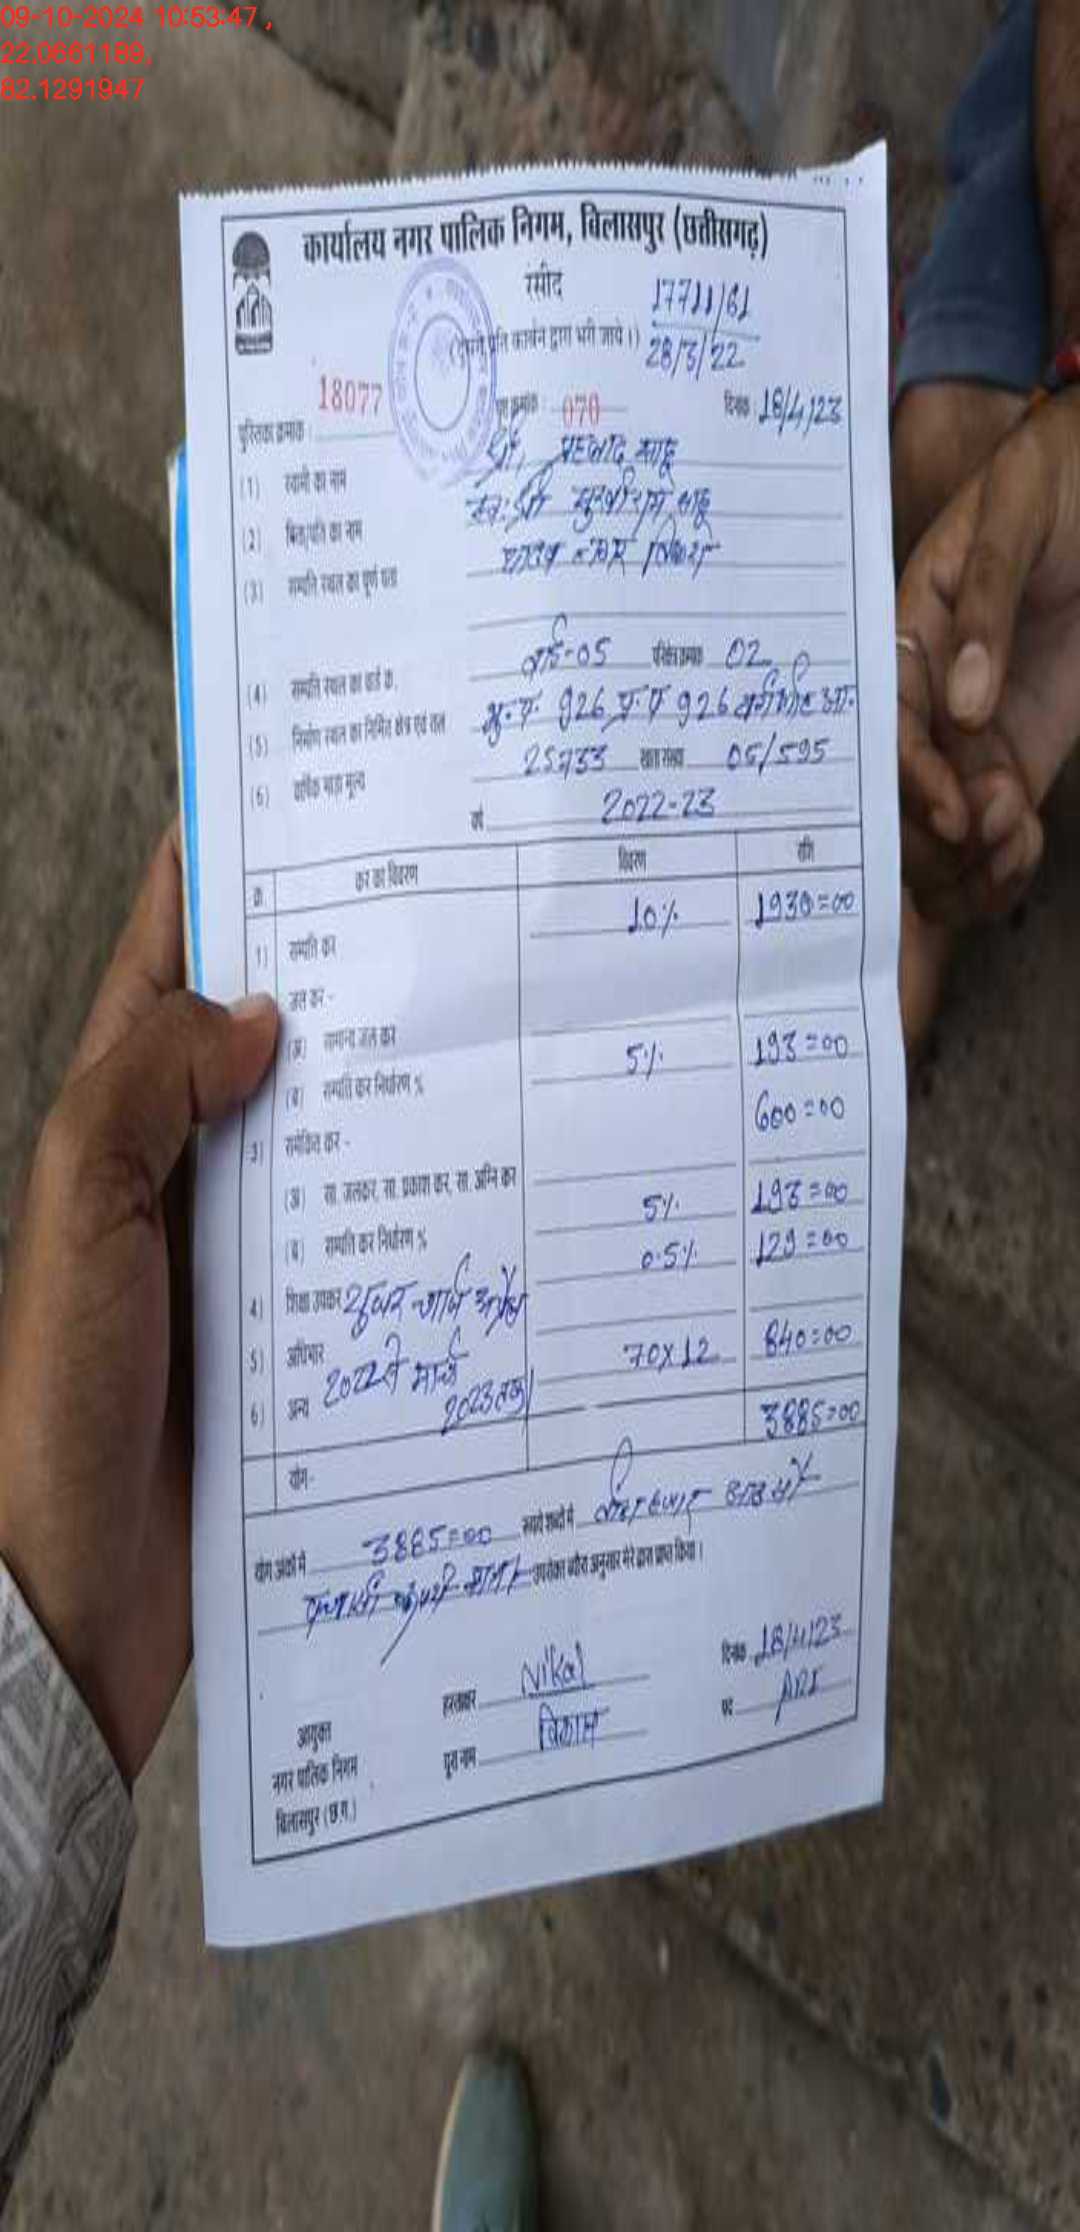 09-10-2024 10:53:47 ,
22.0661189,
82.1291947
कार्यालय नगर पालिक निगम, बिलासपुर (छत्तीसगढ़)
रसीद
17711/61
28/3/22
प्रति कार्बन द्वारा भरी जाये।)
पुस्तिका क्रमांक : 18077 पृष्ठ क्रमांक : 070 दिनांक : 18/4/23
(1) स्वामी का नाम श्री, प्रहलाद साहू
(2) पिता/पति का नाम स्व: श्री साहू
(3) सम्पत्ति स्थल का पूर्ण पता यादव नगर
(4) सम्पत्ति स्थल का वार्ड क्र. वार्ड-05 परिक्षेत्र क्रमांक 02
(5) निर्माण स्थल का निर्मित क्षेत्र एवं तल भु.त. 926 प्र.त 926 वर्गफीट आ.
(6) वार्षिक भाड़ा मूल्य 25733 खाता संख्या 05/595
वर्ष 2022-23
क्र. कर का विवरण विवरण राशि
1) सम्पत्ति कर 10% 1930=00
जल कर -
(अ) सामान्य जल कर
(ब) सम्पत्ति कर निर्धारण % 5% 193=00
3) समेकित कर - 600=00
(अ) सा. जलकर, सा. प्रकाश कर, सा. अग्नि कर
(ब) सम्पत्ति कर निर्धारण % 5% 193=00
4) शिक्षा उपकर 0.5% 129=00
युजर चार्ज अप्रैल
5) अधिभार
2022 से मार्च
6) अन्य 70x12 840=00
2023 तक
योग- 3885=00
योग अंकों में 3885=00 रूपये शब्दों में तीन हजार आठ सौ
पच्यासी रूपये मात्र उपरोक्त ब्यौरा अनुसार मेरे द्वारा प्राप्त किया।
दिनांक 18/4/23
हस्ताक्षर Nikal
पद ARI
आयुक्त
पूरा नाम विकास
नगर पालिक निगम
बिलासपुर (छ.ग.)